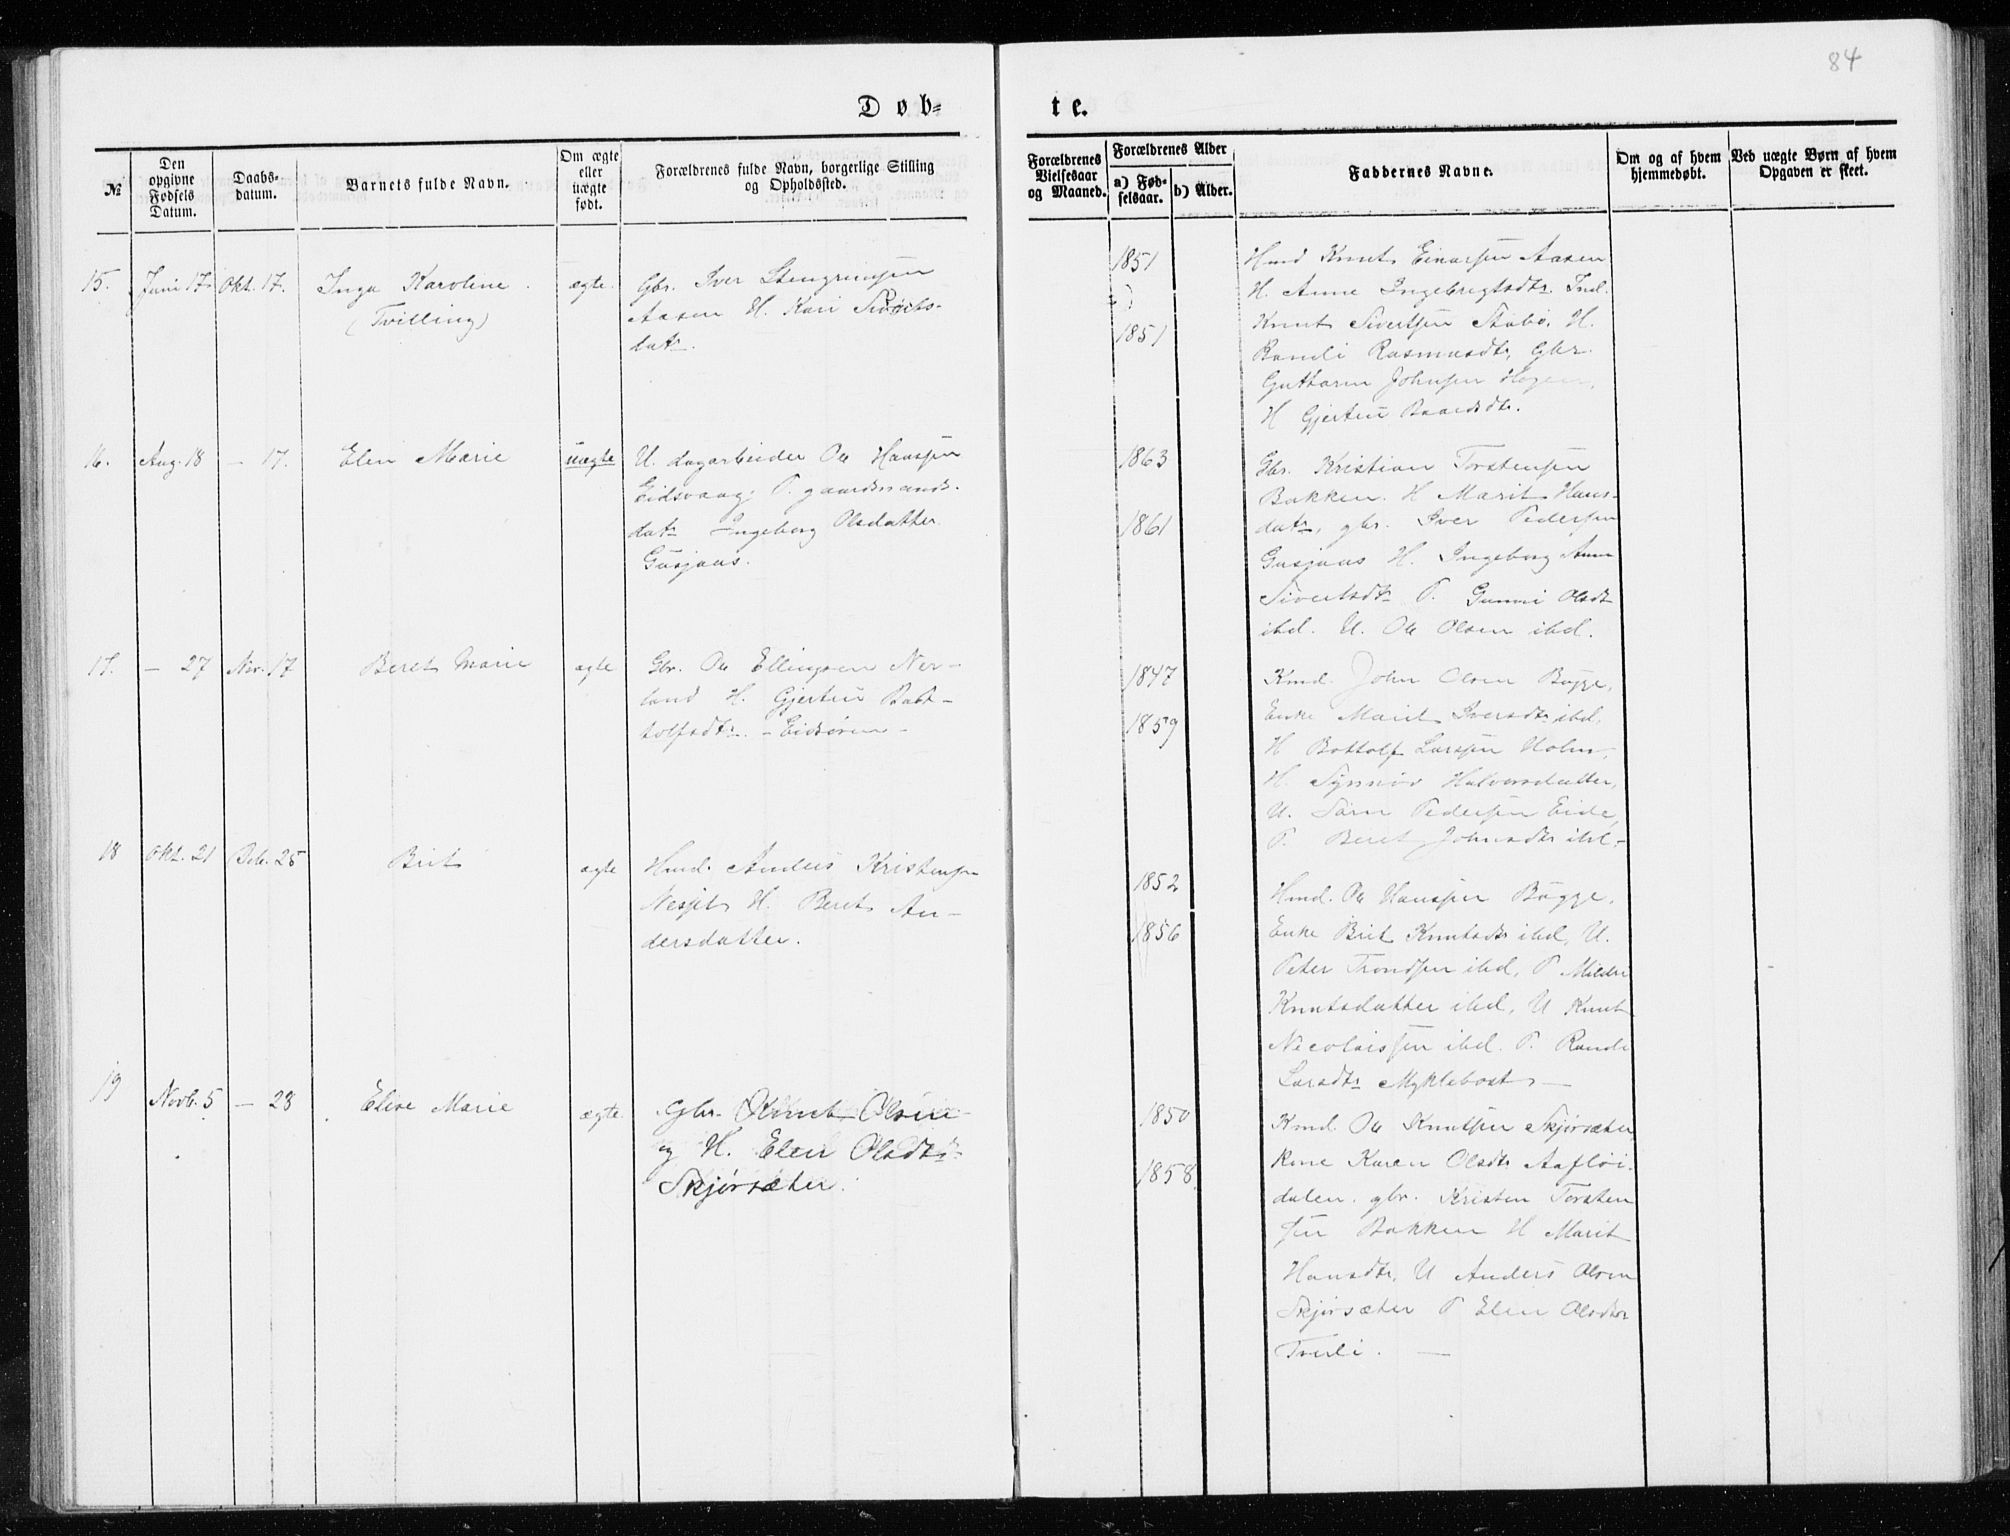 84
Døb=
te.
№
Den opgivne Fødsels Datum.
Daabs-datum.
Barnets fulde Navn.
Om ægte eller uægte født.
Forældrenes fulde Navn, borgerlige Stilling og Opholdssted.
Forældrenes Vielsesaar og Maaned.
Forældrenes Alder
a) Fød-selsaar.
b) Alder.
Faddernes Navne.
Om og af hvem hjemmedøbt.
Ved uægte Børn af hvem Opgaven er skeet.
15. Juni 17. Okt. 17. Inga Karoline ægte.
(Tvilling)
Gbr. Iver Stengrimsen
Aasen H. Kari Siverts-
datr.
1851
1851
Hmd Knut Einarsen Aasen
H. Anne Ingebregtsdtr. Ind.
Knut Sivertsen Stubø. H.
Randi Rasmusdtr, Gbr.
Guttorm Johnsen Hagen,
H Gjertru Baardsdtr.
16. Aug. 18 — 17. Elen Marie uægte
U. dagarbeider Ole Hanssen
Eidsvaag. P. gaardmands-
datr Ingeborg Olsdatter
Gusjaas.
1863
1861
Gbr. Kristian Torstensen
Bakken. H Marit Hans-
datr, gbr. Iver Pedersen
Gusjaas H. Ingeborg Anne
Sivertsdtr P. Gunni Olsdt
ibd. U. Ole Olsen ibd.
17. — 27 Nov. 17 Beret Marie ægte
Gbr. Ole Ellingsen Ner-
land H. Gjertru Bot-
tolfsdtr. - Eidsøren -
1847
1859
Kmd. John Olsen Bugge,
Enke Marit Iversdtr ibd,
H Bottolf Larssen Holm,
H. Synnøv Halvorsdatter,
U. Søren Pedersen Eide,
P. Beret Johnsdtr ibd.-
18 Okt. 21 Deb. 25 Brit ægte
Hmd. Anders Kristensen
Nesjet H. Beret An-
dersdatter.
1852
1856
Hmd. Ole Hanssen Bugge,
Enke Brit Knutsdtr ibd, U.
Peter Trondsen ibd, P Mildri
Knutsdatter ibd, U Knut
Nicolaissen ibd. P. Randi
Larsdtr Myklebost —
19 Novb. 5 — 28 Elise Marie ægte
Gbr. Knut Olsen
og H. Elen Olsdtr.
Skjørsæter.
1850
1858.
Kmd Ole Knutsen Skjørsæter,
Kone Karen Olsdtr Aafløi-
dalen. gbr. Kristen Torsten
sen Bakken H Marit
Hansdtr, U Anders Olsen
Skjørsæter P Elen Olsdtr
Tverli. —